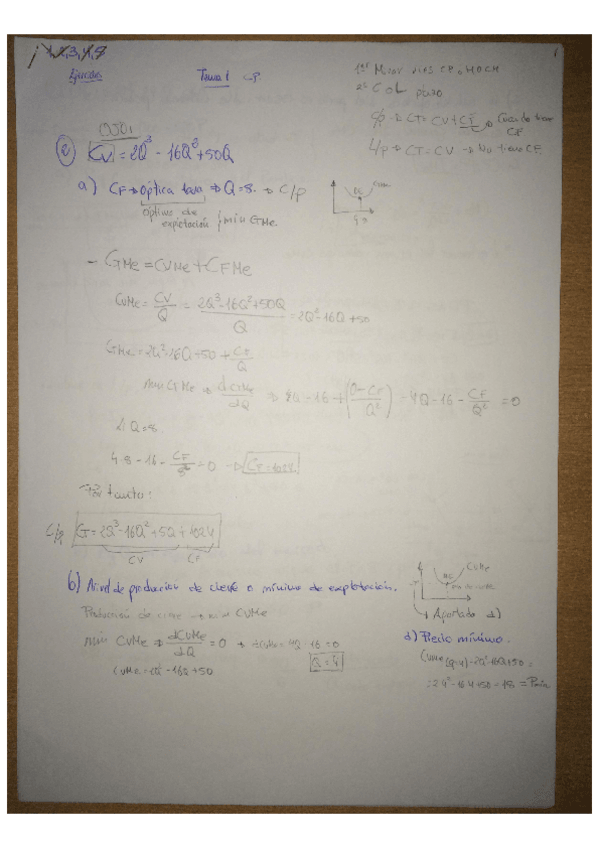 Ejercicios Tema 1 C.P.
1º Mirar
2º C o L plazo
c/p → CT = CV + CF → Cuando
CF
L/p → CT = CV → No CF.
OJO!
② CV = 2Q³ - 16Q² + 50Q
a) CF → óptica ⇒ Q = 8. → C/p
óptimo de explotación } min CMe.
- CMe = CVMe + CFMe
CVMe = CV/Q = 2Q³ - 16Q² + 50Q / Q = 2Q² - 16Q + 50
CMe = 2Q² - 16Q + 50 + CF/Q
min CMe ⇒ dCMe/dQ ⇒ 4Q - 16 + (0 - CF/Q²) = 4Q - 16 - CF/Q² = 0
Q = 8
4·8 - 16 - CF/8² = 0 → CF = 1024.
Por tanto:
C/p C = 2Q³ - 16Q² + 50 + 1024
CV CF
b) Nivel de producción de cierre o mínimo de explotación.
Producción de cierre → min CVMe
min CVMe ⇒ dCVMe/dQ = 0 → 4Q - 16 = 0
Q = 4
CVMe = 2Q² - 16Q + 50
CVMe
→ Apartado d)
d) Precio mínimo.
CVMe (Q=4) = 2Q² - 16Q + 50 =
= 2·4² - 16·4 + 50 = 18 = Pmin